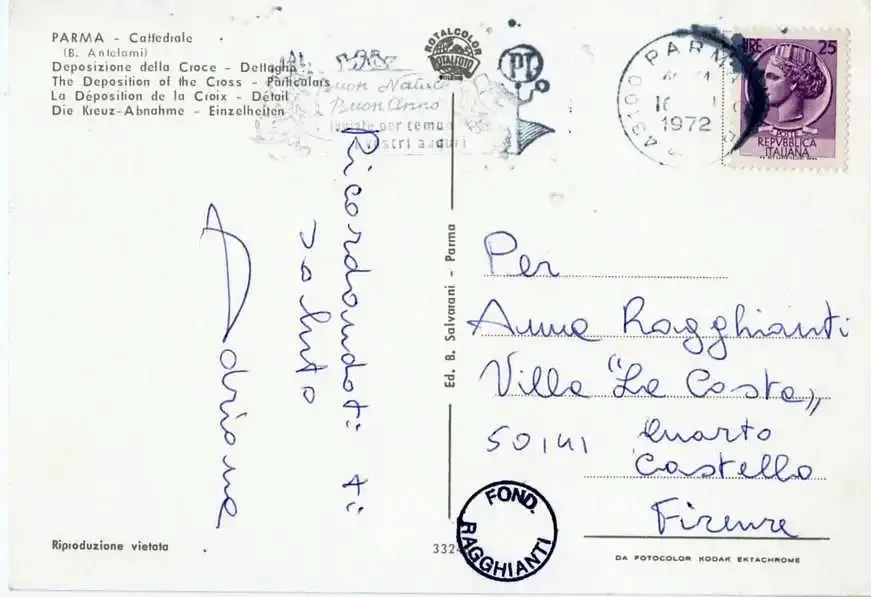 PARMA - Cattedrale
(B. Antelami)
Deposizione della Croce - Dettaglio
The Deposition of the Cross - Particulars
La Déposition de la Croix - Détail
Die Kreuz-Abnahme - Einzelheiten
ROTALCOLOR
ROTALFOTO
Buon Natale
Buon Anno
per tempo
vostri auguri
PT
43100 PARMA
1972
LIRE 25
POSTE
REPVBBLICA
ITALIANA
Ricordandoti ti
saluto
Adriana
Ed. B. Salvarani - Parma
Per
Anna Ragghianti
Villa "La Costa"
50141 Quarto
Castello
Firenze
FOND.
RAGGHIANTI
Riproduzione vietata
332
DA FOTOCOLOR KODAK EKTACHROME